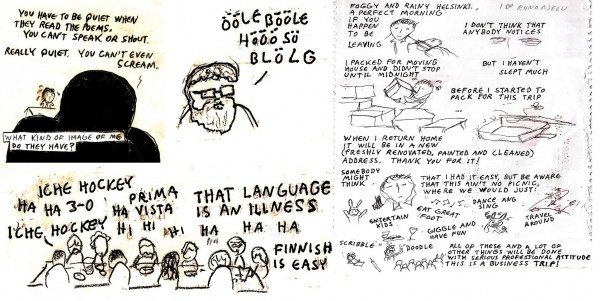 YOU HAVE TO BE QUIET WHEN
THEY READ THE POEMS.
YOU CAN'T SPEAK OR SHOUT.
REALLY QUIET. YOU CAN'T EVEN
SCREAM.
WHAT KIND OF IMAGE OF ME
DO THEY HAVE?
ÖÖLE BÖÖLE
HÖÖÖ SÖ
BLÖLG
ICHE HOCKEY
HA HA 3-0
ICHE HOCKEY
PRIMA
HA VISTA
HI HI HI
THAT LANGUAGE
IS AN ILLNESS
HA HA HA
FINNISH
IS EASY
FOGGY AND RAINY HELSINKI..
A PERFECT MORNING
IF YOU
HAPPEN
TO BE
LEAVING
I DON'T THINK THAT
ANYBODY NOTICES
I PACKED FOR MOVING
HOUSE AND DIDN'T STOP
UNTIL MIDNIGHT
BUT I HAVEN'T
SLEPT MUCH
BEFORE I STARTED TO
PACK FOR THIS TRIP
WHEN I RETURN HOME
IT WILL BE IN A NEW
(FRESHLY RENOVATED, PAINTED AND CLEANED)
ADDRESS. THANK YOU FOR IT!
SOMEBODY
MIGHT
THINK
THAT I HAD IT EASY, BUT BE AWARE
THAT THIS AIN'T NO PICNIC,
WHERE WE WOULD JUST:
ENTERTAIN
KIDS
EAT GREAT
FOOT
DANCE AND
SING
GIGGLE AND
HAVE FUN
TRAVEL
AROUND
SCRIBBLE
DOODLE
ALL OF THESE AND A LOT OF
OTHER THINGS WILL BE DONE
WITH SERIOUS PROFESSIONAL ATTITUDE
THIS IS A BUSINESS TRIP!